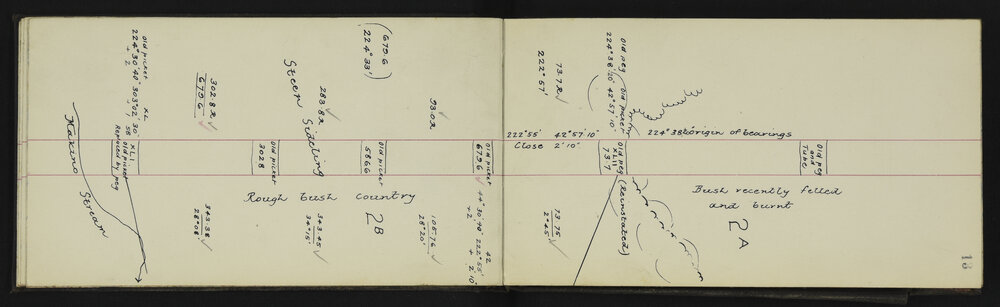 Old picket
224° 30' 40"
+ 2
XL
303° 02' 30"
XLI 58
old picket
Replaced by peg
Kakino Stream
302.8 R
6796
343.38
28° 08'
Steep Sidling
283.8 R
Old picket
3028
Rough bush country
343.45
34° 15'
(6796
224° 33')
Old picket
5866
2B
93.0 R
105.76
28° 20'
Old picket
6796
44° 30' 40"
+2
42
222° 55'
+ 2' 10"
73.7 R
222° 57'
222° 55' 42° 57' 10"
Close 2' 10"
73.75
2° 45'
Old peg
224° 38' 20"
Old picket
42° 57' 10"
224° 38' 20" origin of bearings
Old peg
XLII
737
(Reinstated)
Old peg
and
Tube
Bush recently felled
and burnt
2A
13